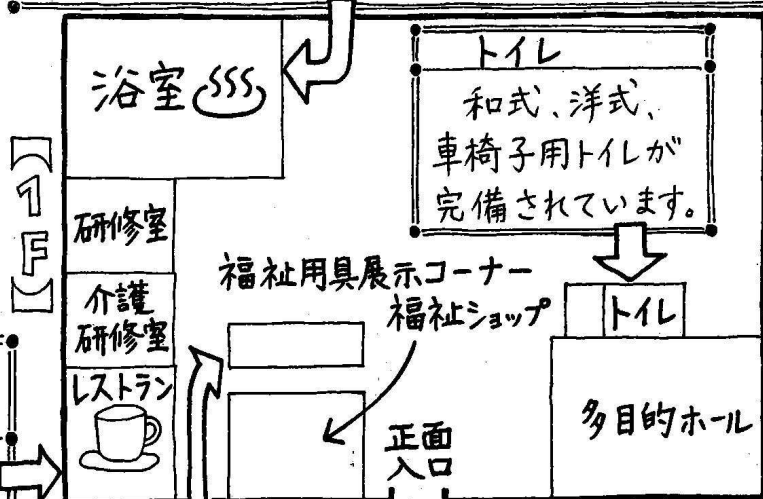 浴室
トイレ
和式、洋式、
車椅子用トイレが
完備されています。
【1F】
研修室
介護
研修室
レストラン
福祉用具展示コーナー
福祉ショップ
トイレ
多目的ホール
正面
入口